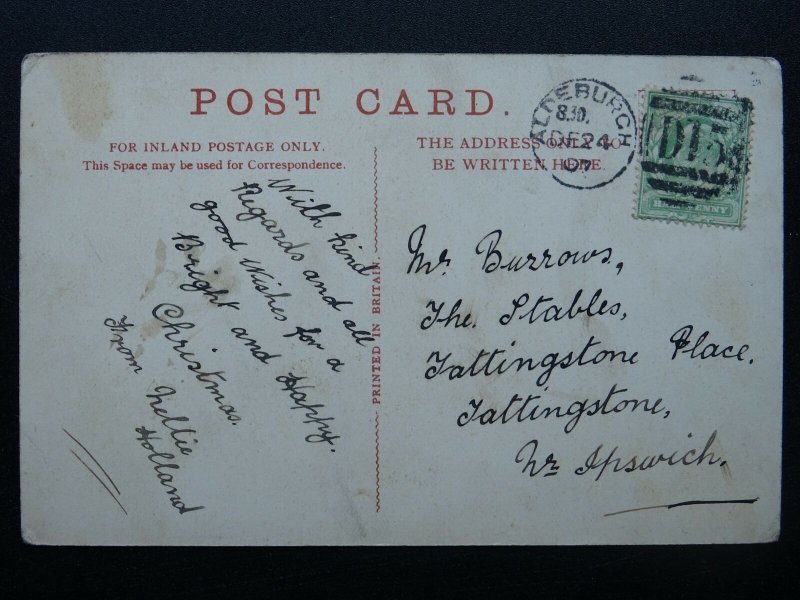 POST CARD.
FOR INLAND POSTAGE ONLY.
This Space may be used for Correspondence.
THE ADDRESS ONLY TO
BE WRITTEN HERE.
ALDEBURGH
8.30.
DE 24
07
D15
HALFPENNY
With kind
Regards and all
good Wishes for a
Bright and Happy.
Christmas.
From Nellie
Holland
PRINTED IN BRITAIN.
Mr. Burrows.,
The. Stables,
Tattingstone Place.
Tattingstone,
Nr Ipswich.